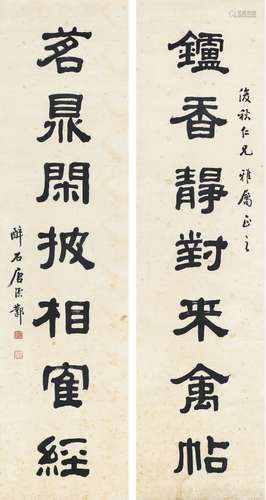 鑪香靜對来禽帖
秋仁兄雅屬正之
茗鼎閑披相寉經
醉石唐源鄴